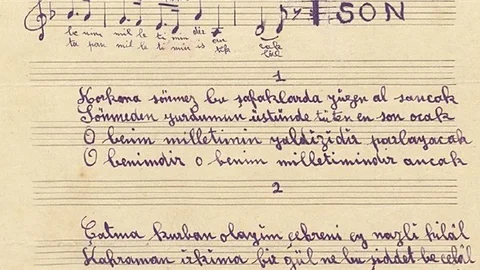 SON
be nim mil le ti min dir an cak
ta pan mil le ti min is tik lâl
1
Korkma sönmez bu şafaklarda yüzen al sancak
Sönmeden yurdumun üstünde tüten en son ocak
O benim milletimin yıldızıdır parlayacak
O benimdir o benim milletimindir ancak
2
Çatma kurban olayım çehreni ey nazlı hilâl
Kahraman ırkıma bir gül ne bu şiddet bu celâl